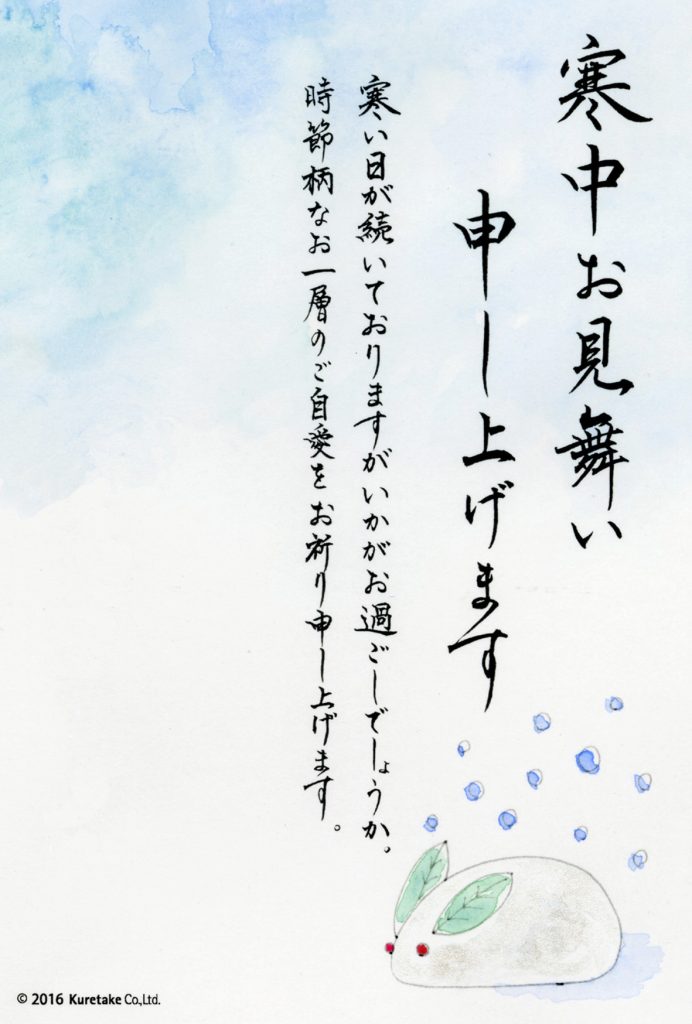 寒中お見舞い
申し上げます
寒い日が続いておりますがいかがお過ごしでしょうか。
時節柄なお一層のご自愛をお祈り申し上げます。
© 2016 Kuretake Co.,Ltd.